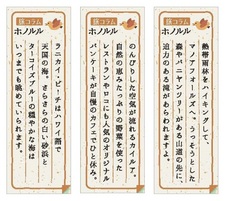 旅コラム
ホノルル
ラニカイ・ビーチはハワイ語で
天国の海。さらさらの白い砂浜と
ターコイズブルーの穏やかな海は
いつまでも眺めていられます。
旅コラム
ホノルル
のんびりした空気が流れるカイルア。
自然の恵たっぷりの野菜を使った
レストランやロコにも人気のオリジナル
パンケーキが自慢のカフェでひと休み。
旅コラム
ホノルル
熱帯雨林をハイキングして、
マノアフォールズへ。うっそうとした
森やバニヤンツリーがある山道の先に、
迫力のある滝があらわれますよ。